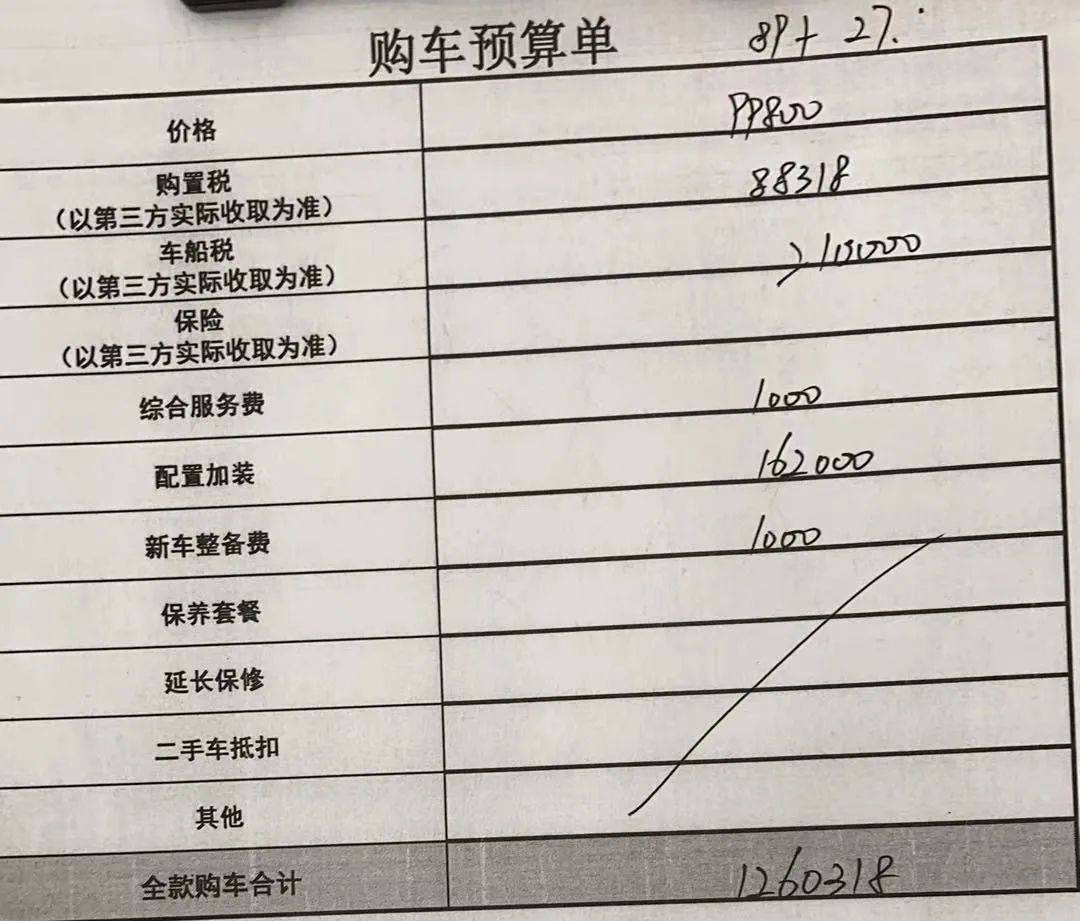 购车预算单 89+ 27.
价格 99800
购置税 88318
（以第三方实际收取为准）
车船税 10000
（以第三方实际收取为准）
保险
（以第三方实际收取为准）
综合服务费 1000
配置加装 162000
新车整备费 1000
保养套餐
延长保修
二手车抵扣
其他
全款购车合计 1260318